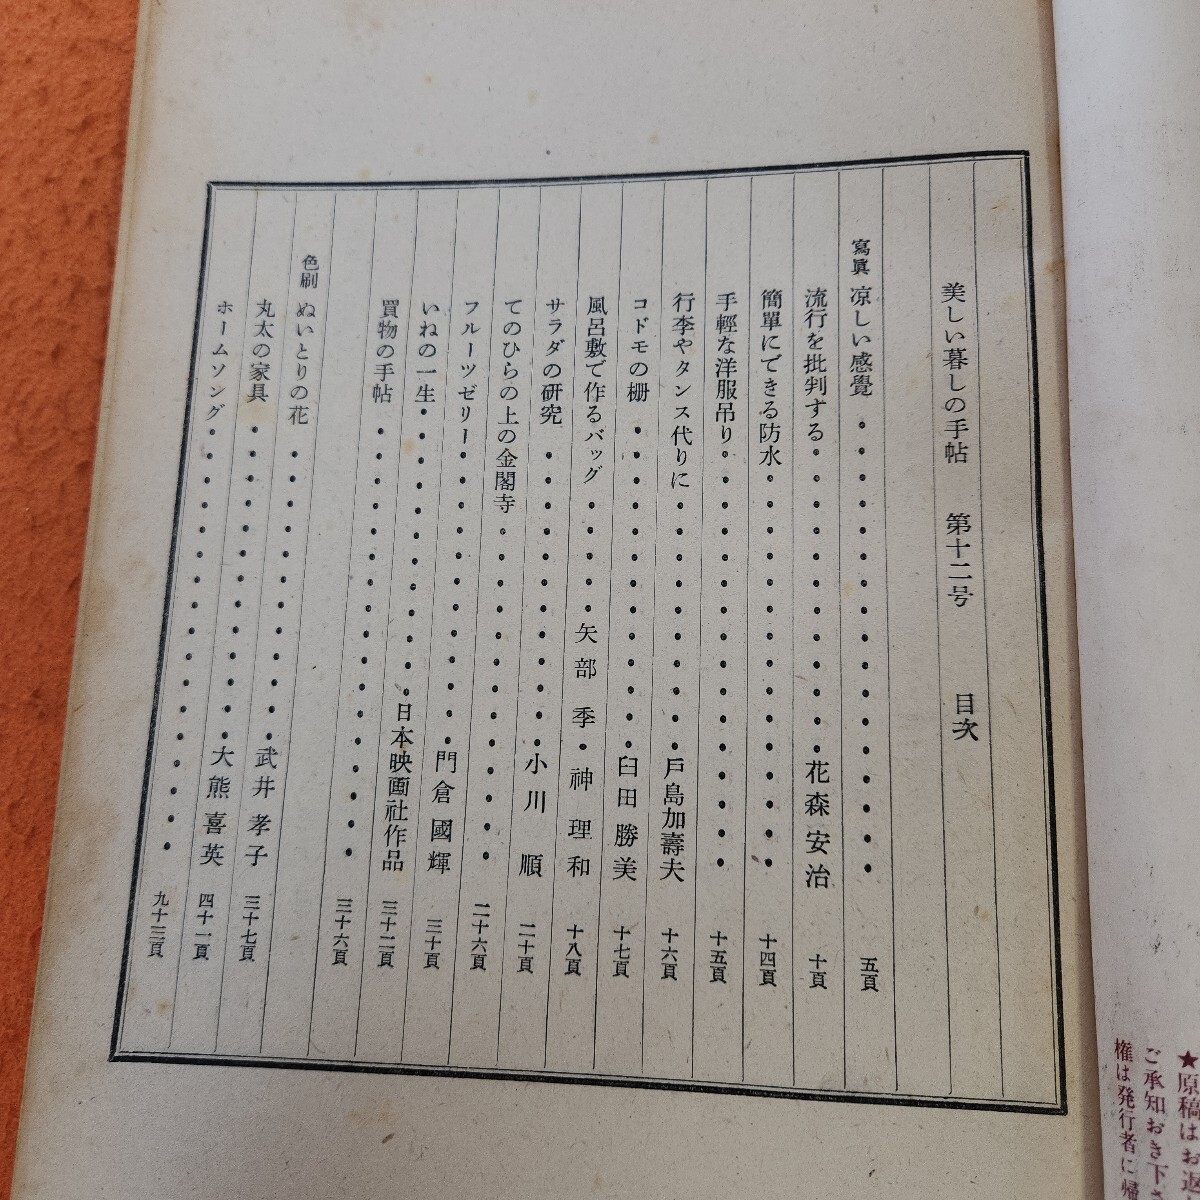 美しい暮しの手帖 第十二号 目次
寫眞 凉しい感覺・・・・・・・・・・・・・・・・・・五頁
流行を批判する・・・・・・・・・・・・花森安治 十頁
簡單にできる防水・・・・・・・・・・・・・・・十四頁
手輕な洋服吊り・・・・・・・・・・・・・・・・十五頁
行李やタンス代りに・・・・・・・・・・戸島加壽夫 十六頁
コドモの柵・・・・・・・・・・・・・臼田勝美 十七頁
風呂敷で作るバッグ・・・・・矢部季・神理和 十八頁
サラダの研究・・・・・・・・・・・・小川順 二十頁
てのひらの上の金閣寺・・・・・・・・・・・・・二十六頁
フルーツゼリー・・・・・・・・・・・門倉國輝 三十頁
いねの一生・・・・・・・・・・・・日本映画社作品 三十二頁
買物の手帖・・・・・・・・・・・・・・・・・三十六頁
色刷 ぬいとりの花・・・・・・・・・・・・武井孝子 三十七頁
丸太の家具・・・・・・・・・・・・・大熊喜英 四十一頁
ホームソング・・・・・・・・・・・・・・・・・九十三頁
★原稿はお返
ご承知おき下さ
権は発行者に帰